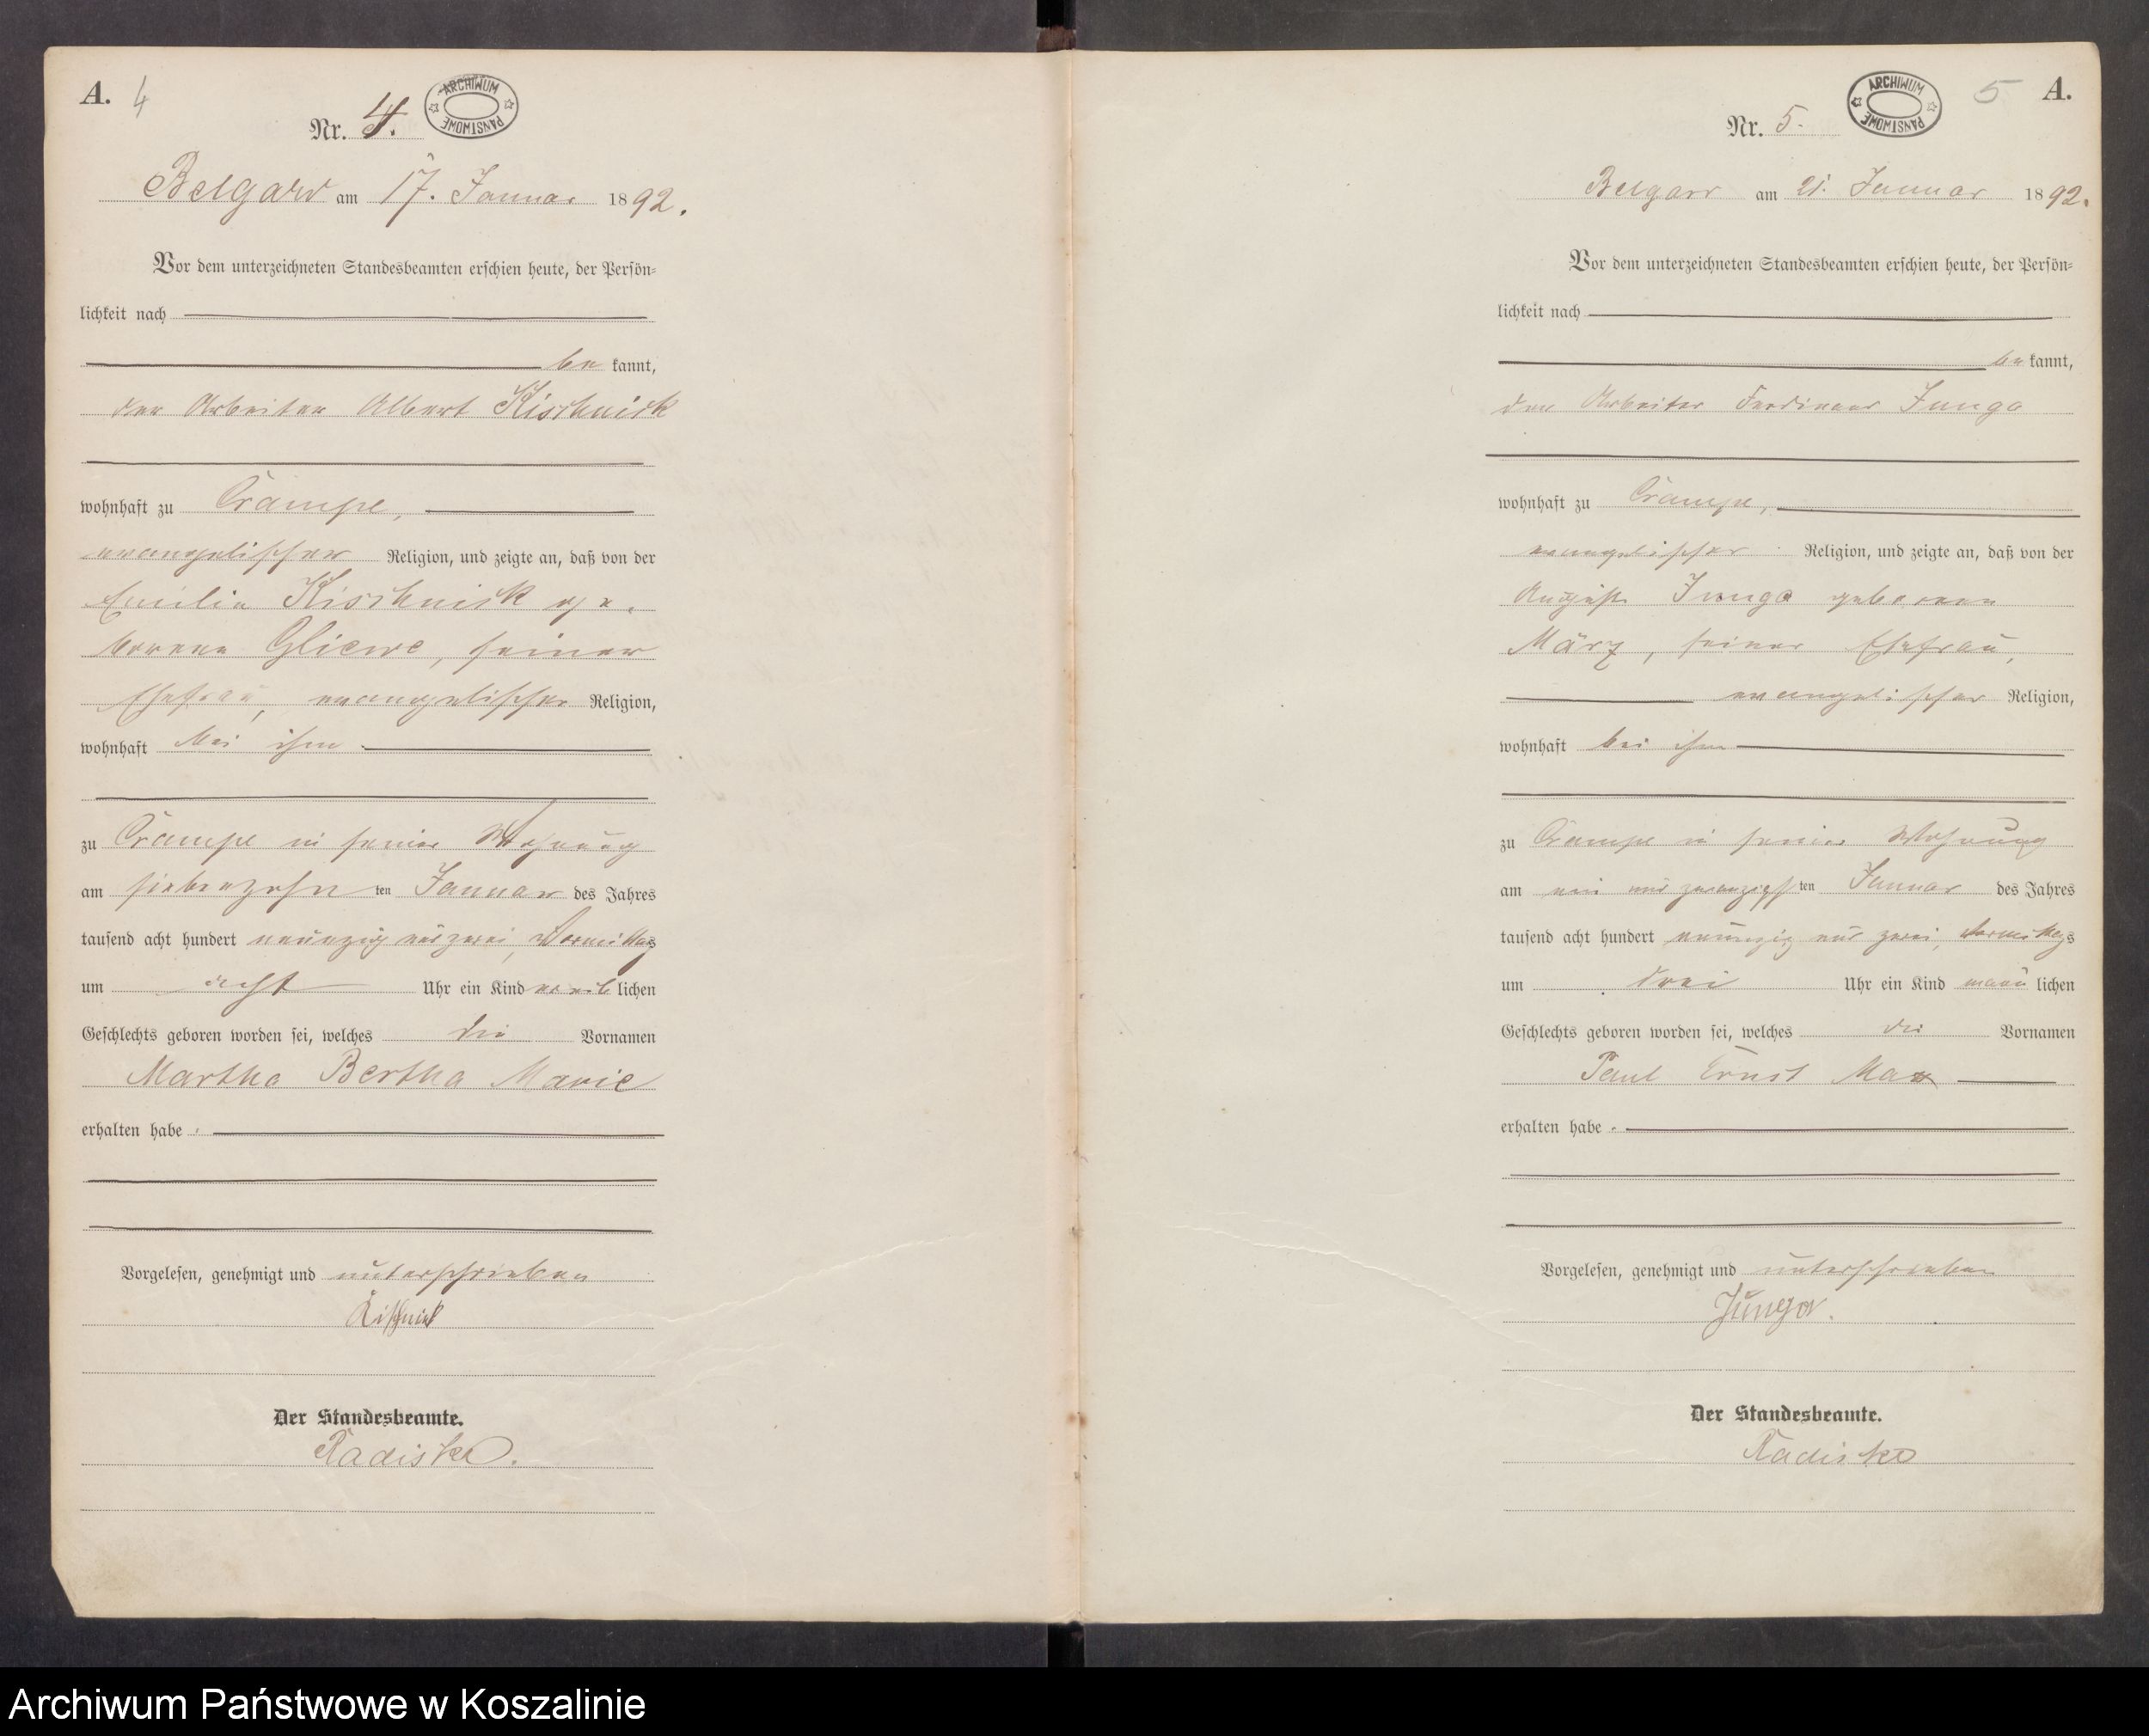 A. 4
ARCHIWUM PAŃSTWOWE
Nr. 4.
Belgard am 17. Januar 1892.
Vor dem unterzeichneten Standesbeamten erschien heute, der Persön=
lichkeit nach
be kannt,
der Arbeiter Albert Kischnick
wohnhaft zu Crampe,
evangelischer Religion, und zeigte an, daß von der
Emilie Kischnick ge-
borene Gliewe, seiner
Ehefrau, evangelischer Religion,
wohnhaft bei ihm
zu Crampe in seiner Wohnung
am siebenzehn ten Januar des Jahres
tausend acht hundert neunzig und zwei, Vormittags
um acht Uhr ein Kind weib lichen
Geschlechts geboren worden sei, welches die Vornamen
Martha Bertha Marie
erhalten habe.
Vorgelesen, genehmigt und unterschrieben
Kischnick
Der Standesbeamte.
Radiske.
5 A.
ARCHIWUM PAŃSTWOWE
Nr. 5.
Belgard am 21. Januar 1892.
Vor dem unterzeichneten Standesbeamten erschien heute, der Persön=
lichkeit nach
be kannt,
der Arbeiter Ferdinand Junga
wohnhaft zu Crampe,
evangelischer Religion, und zeigte an, daß von der
Auguste Junga geborenen
März, seiner Ehefrau,
evangelischer Religion,
wohnhaft bei ihm
zu Crampe in seiner Wohnung
am ein und zwanzigsten Januar des Jahres
tausend acht hundert neunzig und zwei, Vormittags
um drei Uhr ein Kind männ lichen
Geschlechts geboren worden sei, welches die Vornamen
Paul Ernst Max
erhalten habe.
Vorgelesen, genehmigt und unterschrieben
Junga.
Der Standesbeamte.
Radiske
Archiwum Państwowe w Koszalinie